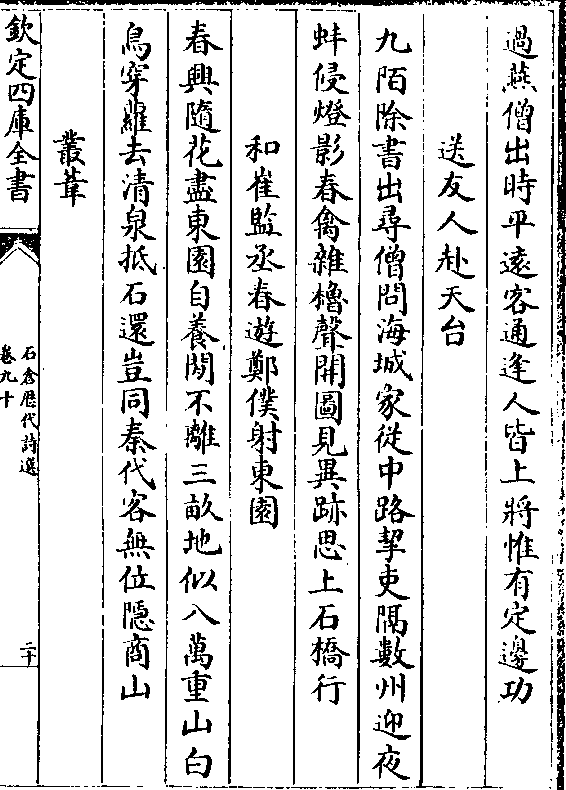 過燕僧出時平遠客通逢人皆上將惟有定邊功
送友人赴天台
九陌除書出尋僧問海城家從中路挈吏隔數州迎夜
蚌侵燈影春禽雜櫓聲開圖見異跡思上石橋行
和崔監丞春遊鄭僕射東園
春興隨花盡東園自養閒不離三畝地似入萬重山白
鳥穿蘿去清泉抵石還豈同秦代客無位隱商山
叢葦
欽定四庫全書
石倉歴代詩選
卷九十
二十